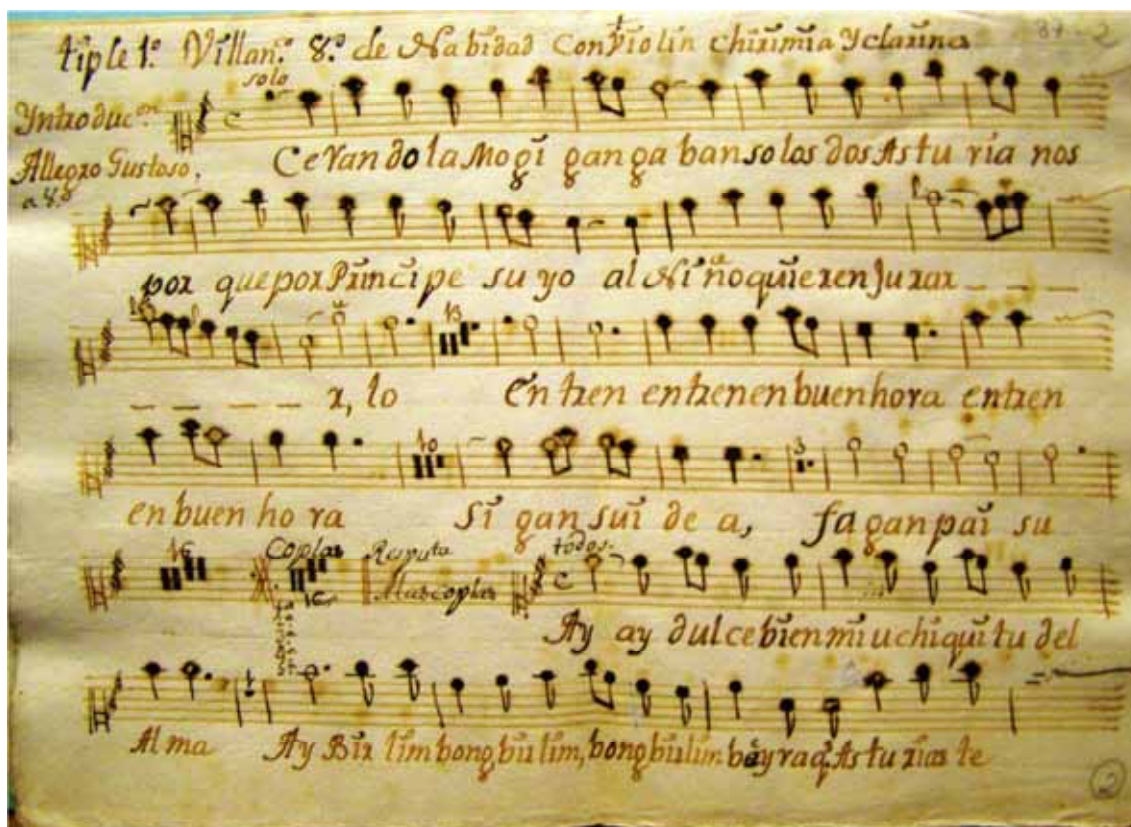 tiple 1.º Villan.co 8.º de Nabidad con Violin chirimia Y clarines
solo
Yntroduc.on
Allegro Gustoso.
a 8.º
Ce Van do la Mogi gan ga ban so los dos As tu ria nos
por que por Principe su yo al Niño quieren Jurar
r, lo En tren entrenenbuenhora entren
13
en buen ho ra Si gan sui de a, fa gan pai su
10 3
16 Coplas Resputa todos.
Mas coplas
Ay ay dulce bien miu chi qui tu del
Al ma Ay Bir lim bong bir lim, bong bir lim bay ra q̃ As tu rias te
2